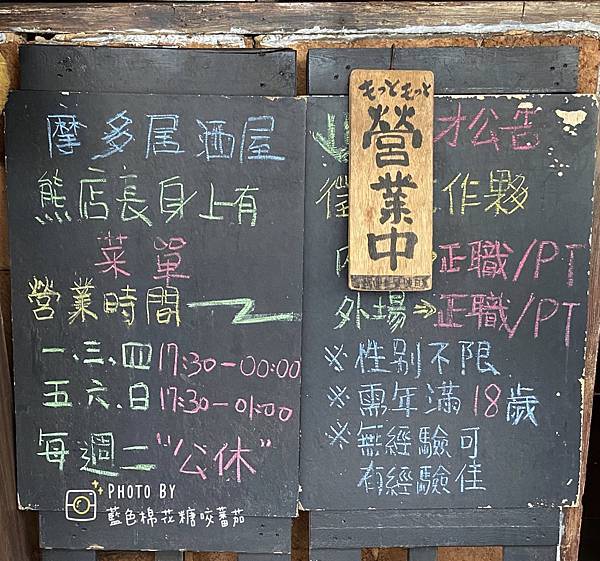 摩多居酒屋
熊店長身上有
菜單
營業時間
一.三.四 17:30-00:00
五.六.日 17:30-01:00
每週二"公休"
もっともっと
營業中
才公告
徵 作夥
內 正職/PT
外場 => 正職/PT
※性別不限
※需年滿18歲
※無經驗可
有經驗佳
PHOTO BY
藍色棉花糖咬蕃茄